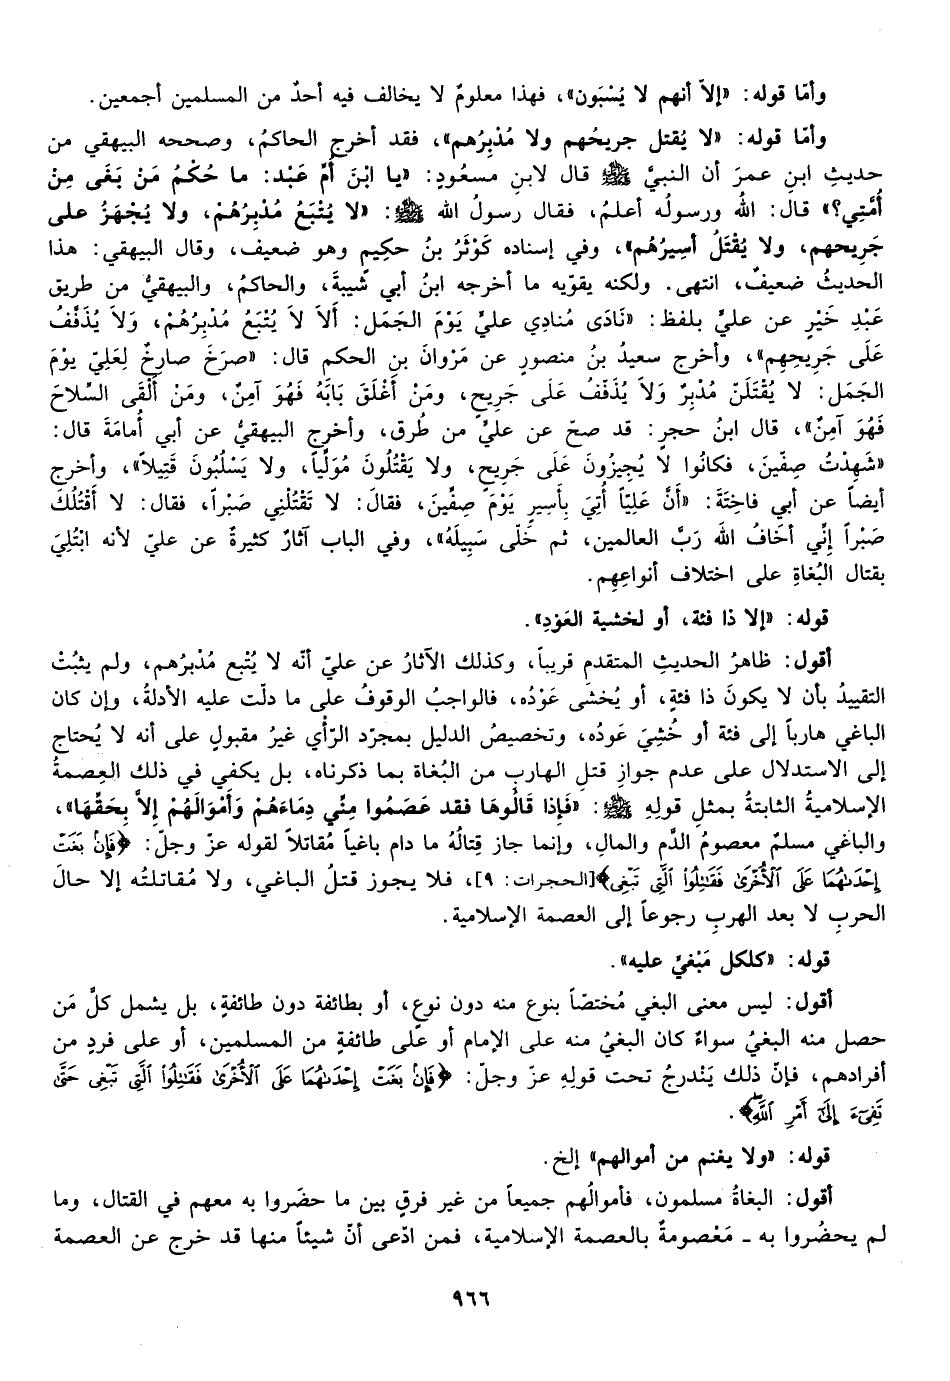 وأمّا قوله: «إلاّ أنهم لا يُسْبَون»، فهذا معلومٌ لا يخالف فيه أحدٌ من المسلمين أجمعين.
وأمّا قوله: «لا يُقتل جريحُهم ولا مُدْبِرُهم»، فقد أخرج الحاكمُ، وصححه البيهقي من
حديثِ ابنِ عمرَ أن النبيَّ ﷺ قال لابنِ مسعُودٍ: «يا ابْنَ أُمِّ عَبْد: ما حُكْمُ مَنْ بَغَى مِنْ
أُمَّتِي؟» قال: اللهُ ورسولُه أعلمُ، فقال رسولُ الله ﷺ: «لا يُتْبَعُ مُدْبِرُهُمْ، ولا يُجْهَزُ على
جَرِيحهم، ولا يُقْتَلُ أسِيرُهُم»، وفي إسناده كَوْثَرُ بنُ حكيمٍ وهو ضعيف، وقال البيهقي: هذا
الحديثُ ضعيفٌ، انتهى. ولكنه يقوّيه ما أخرجه ابنُ أبي شيبةَ، والحاكمُ، والبيهقيُّ من طريق
عَبْدِ خَيْرٍ عن عليٍّ بلفظ: «نَادَى مُنادِي عليٍّ يَوْمَ الجَمَل: أَلاَ لاَ يُتْبَعُ مُدْبِرُهُمْ، وَلاَ يُذَفَّفُ
عَلَى جَرِيحِهِم»، وأخرج سعيدُ بنُ منصورٍ عن مَرْوانَ بنِ الحكم قال: «صرَخَ صارِخٌ لِعَلِيّ يوْمَ
الجَمَل: لا يُقْتَلَنّ مُدْبِرٌ وَلاَ يُذَفّفُ عَلَى جَرِيحٍ، ومَنْ أَغْلَقَ بَابَهُ فَهُوَ آمِنٌ، ومَنْ أَلْقَى السِّلاحَ
فَهُوَ آمِنٌ»، قال ابنُ حجرٍ: قد صحّ عن عليٍّ من طُرق، وأخرج البيهقيُّ عن أبي أُمامَةَ قال:
«شَهِدْتُ صِفّينَ، فكانُوا لا يُجِيزُونَ عَلَى جَريحٍ، ولا يَقْتُلُونَ مُوَلّياً، ولا يَسْلُبُونَ قَتِيلاً»، وأخرج
أيضاً عن أبي فاخِتَةَ: «أنَّ عَلِيّاً أُتِيَ بِأَسِيرٍ يَوْمَ صِفّينَ، فقالَ: لا تَقْتُلْنِي صَبْراً، فقال: لا أَقْتُلُكَ
صَبْراً إِنِّي أخَافُ اللهَ رَبَّ العالمين، ثم خَلّى سَبِيلَهُ»، وفي الباب آثارٌ كثيرةٌ عن عليّ لأنه ابْتُلِيَ
بقتال البُغاةِ على اختلاف أنواعِهِم.
قوله: «إلا ذا فئة، أو لخشية العَوْدِ».
أقول: ظاهرُ الحديثِ المتقدم قريباً، وكذلك الآثارُ عن عليّ أنّه لا يُتْبع مُدْبرُهم، ولم يثبُتْ
التقييدُ بأن لا يكونَ ذا فئةٍ، أو يُخشَى عَوْدُه، فالواجبُ الوقوفُ على ما دلّت عليه الأدلةُ، وإن كان
الباغي هارباً إلى فئة أو خُشِيَ عَودُه، وتخصيصُ الدليل بمجرّد الرّأي غيرُ مقبولٍ على أنه لا يُحتاج
إلى الاستدلال على عدم جوازِ قتلِ الهاربِ من البُغاة بما ذكرناه، بل يكفي في ذلك العِصمةُ
الإسلاميةُ الثابتةُ بمثلِ قولِهِ ﷺ: «فَإِذا قَالُوهَا فقد عَصَمُوا مِنِّي دِماءَهُمْ وَأمْوَالَهُمْ إلاَّ بِحَقِّهَا»،
والباغي مسلمٌ معصومُ الدَّمِ والمالِ، وإنما جاز قِتالُهُ ما دام باغياً مُقاتلاً لقوله عزّ وجلّ: ﴿فَإِنْ بَغَتْ
إِحْدَىٰهُمَا عَلَى ٱلْأُخْرَىٰ فَقَٰتِلُوا۟ ٱلَّتِى تَبْغِى﴾[الحجرات: ٩]، فلا يجوز قتلُ الباغي، ولا مُقاتلتُه إلا حالَ
الحربِ لا بعد الهربِ رجوعاً إلى العصمة الإسلامية.
قوله: «كلكل مَبْغيّ عليه».
أقول: ليس معنى البغي مُختصّاً بنوع منه دون نوعٍ، أو بطائفة دون طائفةٍ، بل يشمل كلَّ مَن
حصل منه البغيُ سواءٌ كان البغيُ منه على الإمام أو على طائفةٍ من المسلمين، أو على فردٍ من
أفرادهم، فإنّ ذلك يَنْدرجُ تحت قولِهِ عزّ وجلّ: ﴿فَإِنۢ بَغَتْ إِحْدَىٰهُمَا عَلَى ٱلْأُخْرَىٰ فَقَٰتِلُوا۟ ٱلَّتِى تَبْغِى حَتَّىٰ
تَفِىٓءَ إِلَىٰٓ أَمْرِ ٱللَّهِ﴾.
قوله: «ولا يغنم من أموالهم» إلخ.
أقول: البغاةُ مسلمون، فأموالُهم جميعاً من غير فرقٍ بين ما حضَروا به معهم في القتال، وما
لم يحضُروا به ـ مَعْصومةٌ بالعصمة الإسلامية، فمن ادّعى أنّ شيئاً منها قد خرج عن العصمة
٩٦٦